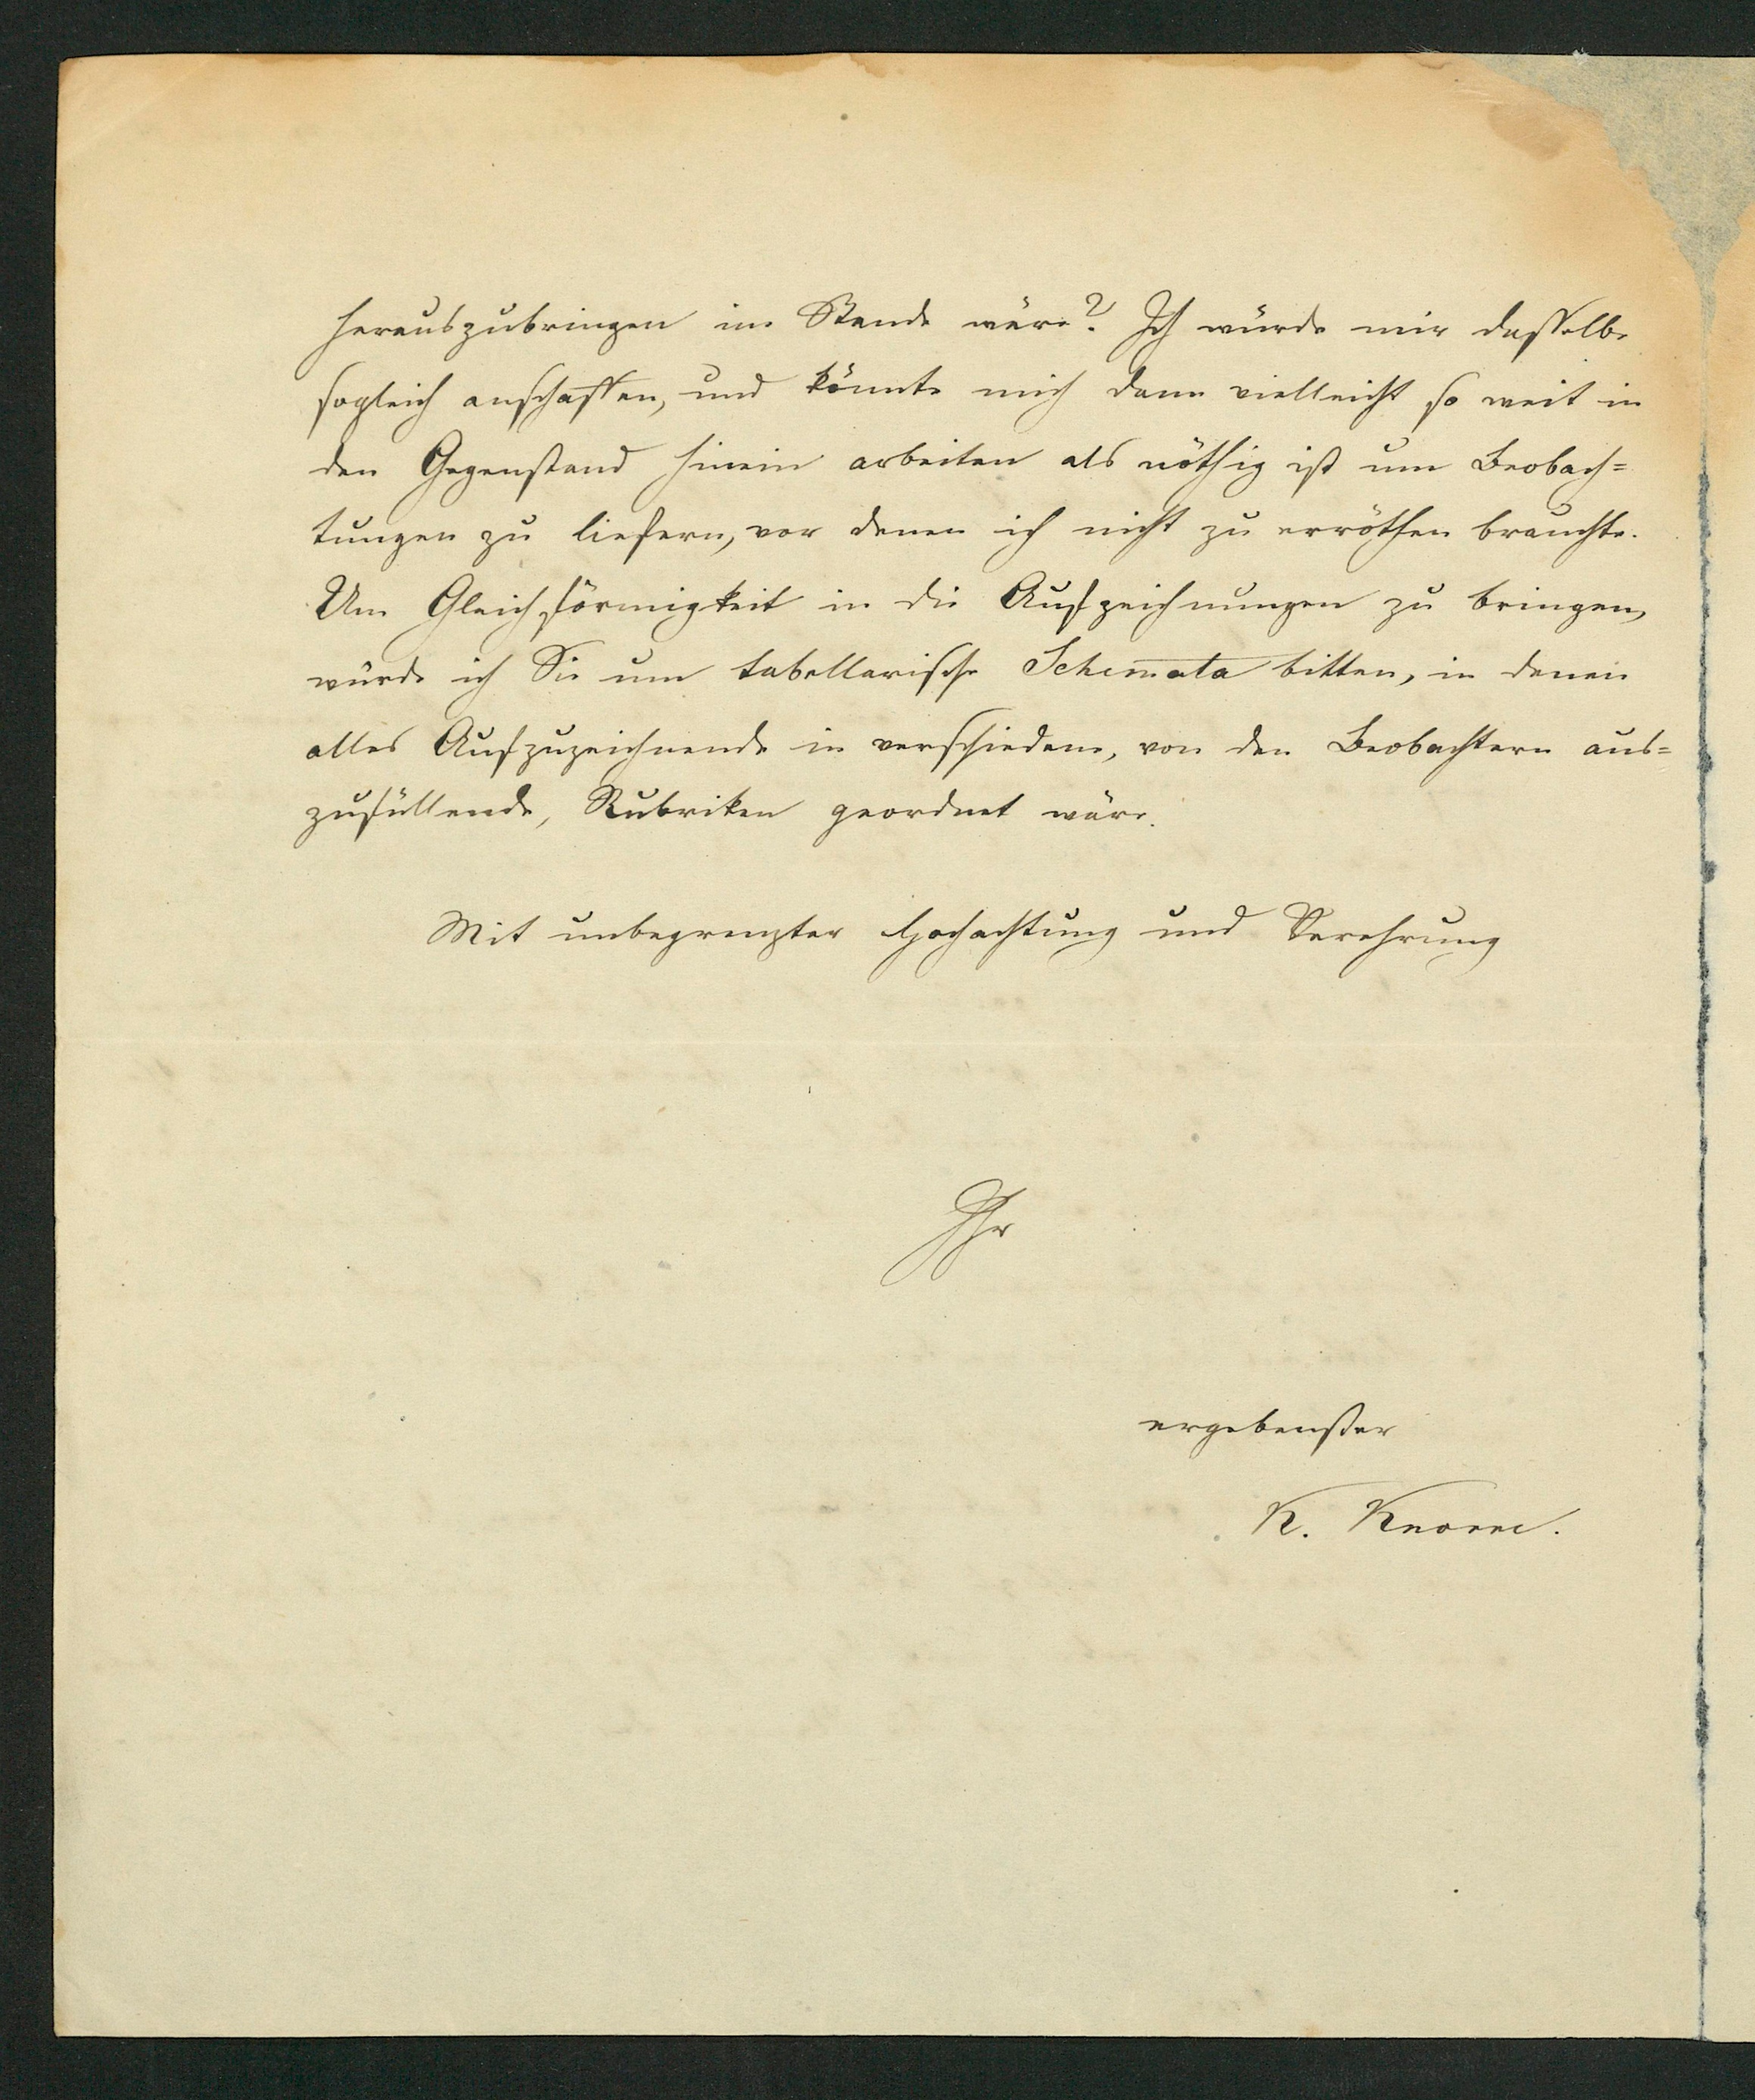 herauszubringen im Stande wäre? Ich würde mir dasselbe
sogleich anschaffen, und könnte mich dann vielleicht so weit in
den Gegenstand hinein arbeiten als nöthig ist um Beobach=
tungen zu liefern, vor denen ich nicht zu erröthen brauchte.
Um Gleichförmigkeit in die Aufzeichnungen zu bringen,
würde ich Sie um tabellarische Schemata bitten, in denen
alles Aufzuzeichnende in verschiedene, von den Beobachtern aus=
zufüllende, Rubriken geordnet wäre.
Mit unbegrenzter Hochachtung und Verehrung
Ihr
ergebenster
K. Knorre.